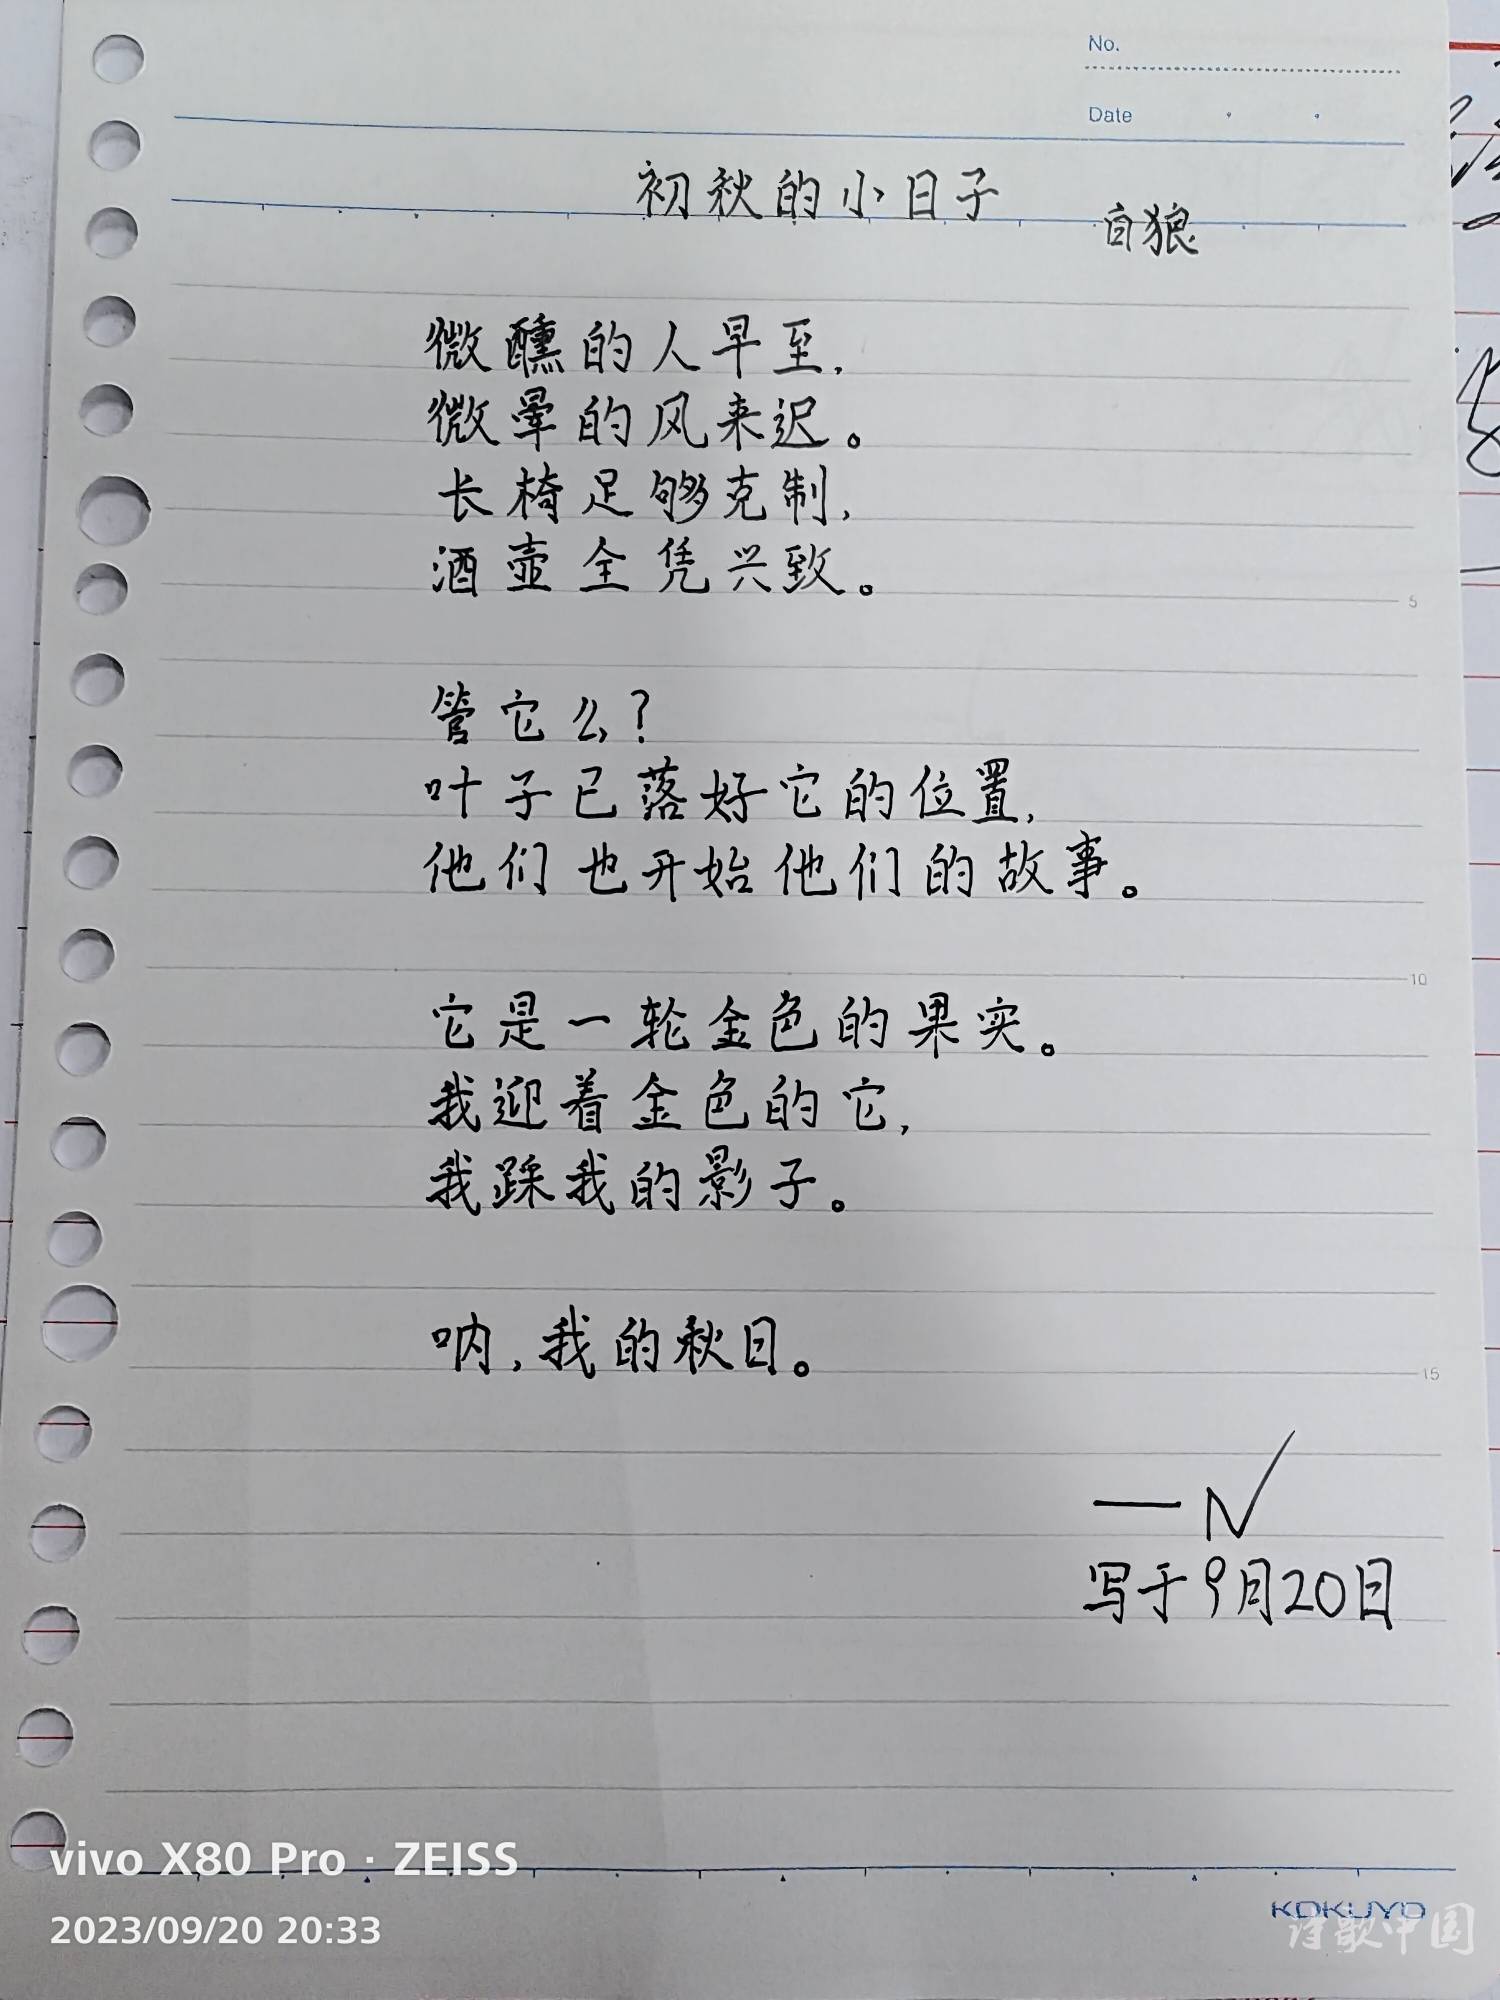 No.
Date
初秋的小日子
白狼
微醺的人早至,
微晕的风来迟。
长椅足够克制,
酒壶全凭兴致。
管它么?
叶子已落好它的位置,
他们也开始他们的故事。
它是一轮金色的果实。
我迎着金色的它,
我踩我的影子。
呐,我的秋日。
—N
写于9月20日
5
10
15
vivo X80 Pro · ZEISS
2023/09/20 20:33
KOKUYO
诗歌中国